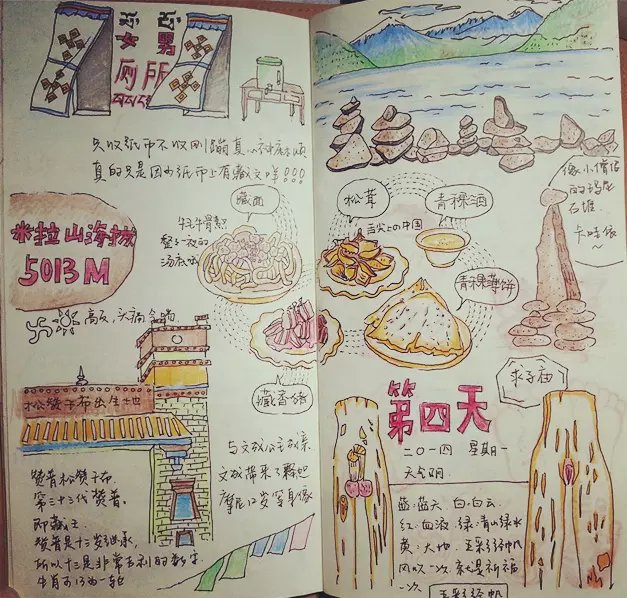 女 男
厕所
只收纸币不收刚蹦真
真的只是因为纸币上有藏文咩!!!
米拉山海拔
5013M
藏面
牦牛骨熬
整了一夜的
汤底
高反，头痛
藏香猪
松赞干布出生地
赞普松赞干布
第三十三代赞普。
即藏王
赞普是十三岁继承，
所以十三是非常吉利的数字
生肖
与文成公主
文成带来了释迦
摩尼12岁等身像
松茸
舌尖上の中国
青稞酒
青稞薄饼
像小僧侣
的玛尼
石堆
卡哇依
~
求子庙
第四天
二〇一四 星期一
天气阴
蓝:蓝天 白:白云
红:血液 绿:青山绿水
黄:大地 五彩经幡
风吹一次就是祈福
一次
五彩经幡